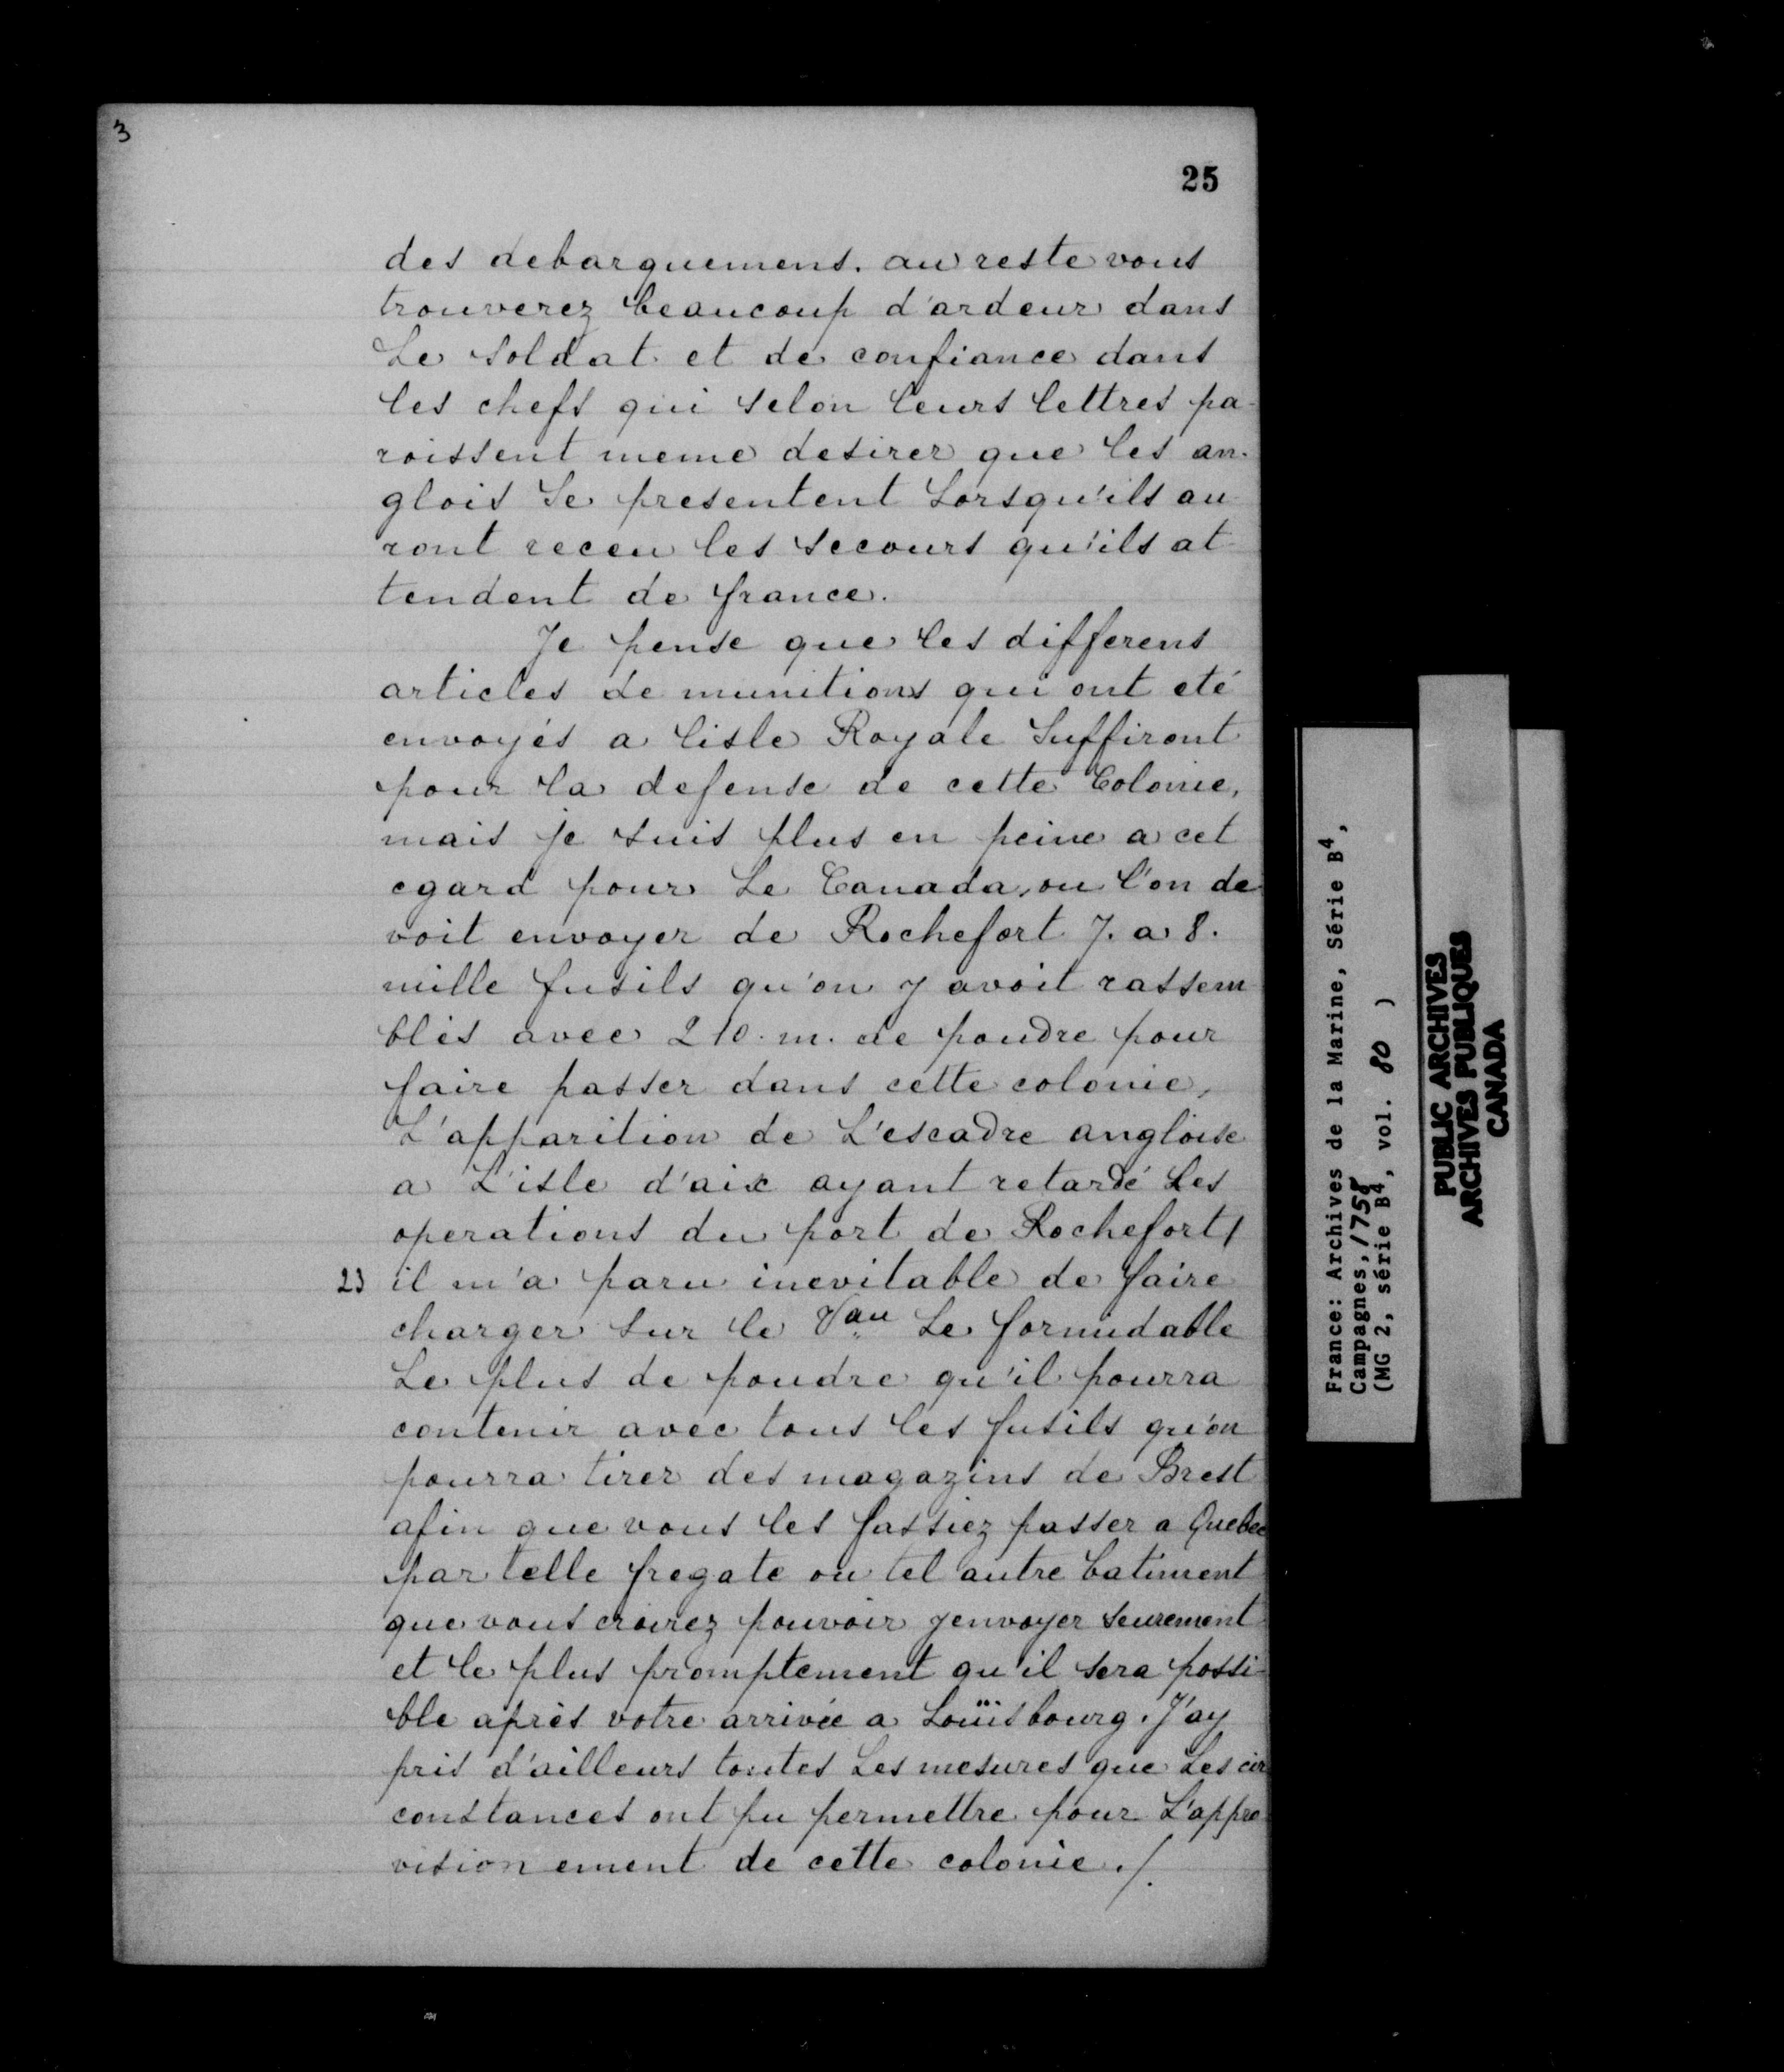 3
25
des debarquemens. au reste vous
trouverez beaucoup d'ardeur dans
Le soldat et de confiance dans
les chefs qui selon leurs lettres pa-
roissent meme desirer que les an-
glois Se presentent Lorsqu'ils au
ront receu les secours qu'ils at-
tendent de france.
Je pense que les differens
articles de munitions qui ont eté
envoyés a lisle Royale Suffiront
pour la defense de cette Colonie,
mais je suis plus en peine a cet
egard pour Le Canada, ou l'on de
voit envoyer de Rochefort 7. a 8.
mille fusils qu'on y avoit rassem
blés avec 210. m. de poudre pour
faire passer dans cette colonie,
L'apparition de L'escadre angloise
a L'isle d'aix ayant retardé Les
operations du port de Rochefort/
23 il m'a paru inevitable de faire
charger sur le Vau Le formidable
Le plus de poudre qu'il pourra
contenir avec tous les fusils qu'on
pourra tirer des magazins de Brest
afin que vous les fassiez passer a Quebec
par telle fregate ou tel autre batiment
que vous croirez pouvoir y envoyer seurement
et le plus promptement qu'il sera possi-
ble après votre arrivée a Loüisbourg. J'ay
pris d'ailleurs toutes Les mesures que Les cir
constances ont pu permettre pour L'appro
visionement de cette colonie ./.
France: Archives de la Marine, Série B4,
Campagnes, /758
(MG 2, série B4, vol. 80 )
PUBLIC ARCHIVES
ARCHIVES PUBLIQUES
CANADA